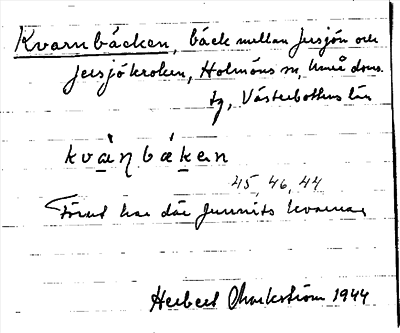 Kvarnbäcken, bäck mellan Jersjön och
Jersjökroken, Holmöns sn, Umeå doms.
tg, Västerbottens län
kvà̀ηbáken
45, 46, 44
Förut har där funnits kvarnar
Herbert Markström 1944